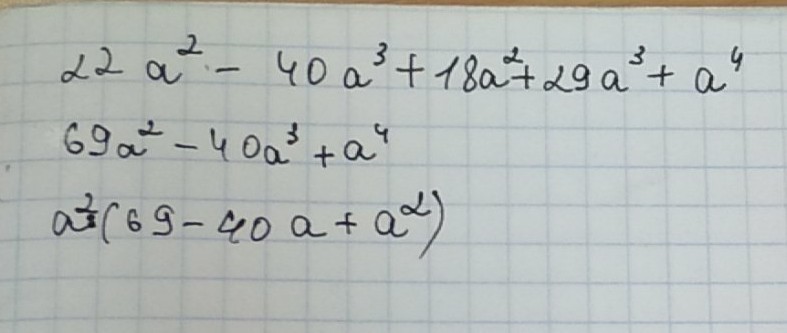 22a² - 40a³ + 18a² + 29a³ + a⁴
69a² - 40a³ + a⁴
a²(69 - 40a + a²)